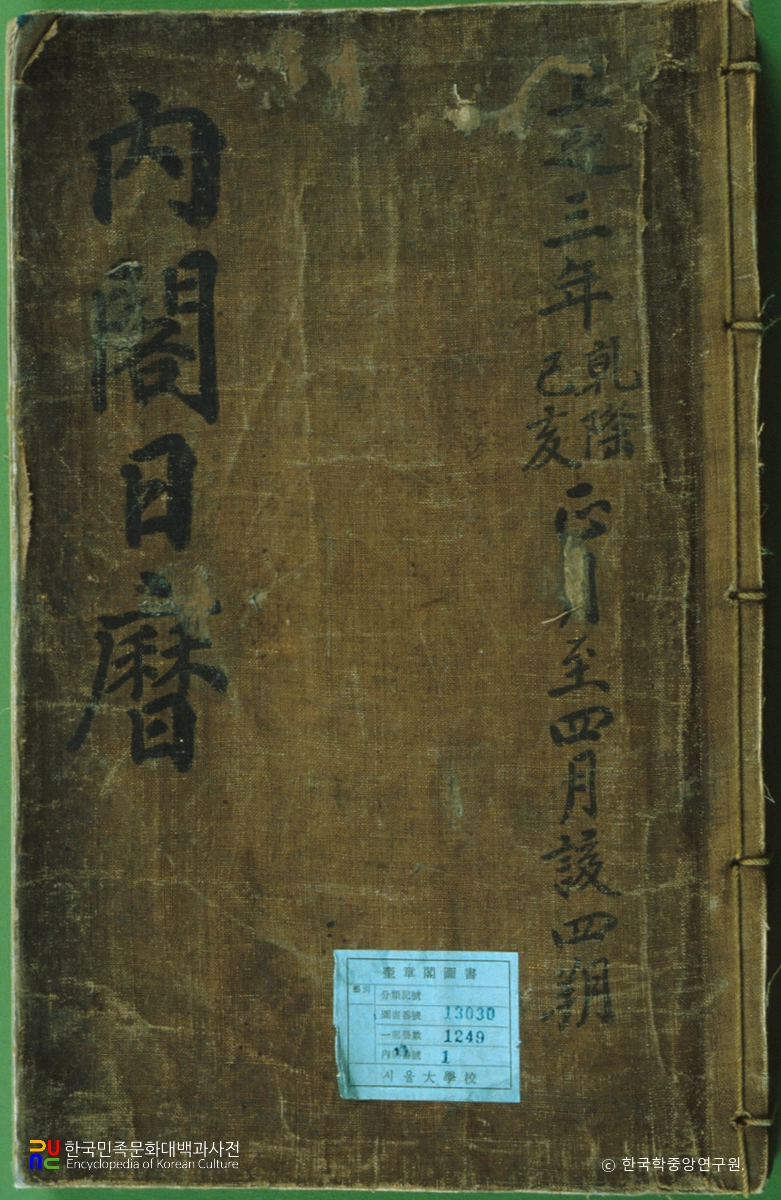 上之三年
乾隆
己亥
正月至四月 四朔
內閣日曆
奎章閣圖書
分類記號
圖書番號 13030
一部冊數 1249
內 番號 1
서울大學校
한국민족문화대백과사전
Encyclopedia of Korean Culture
© 한국학중앙연구원.